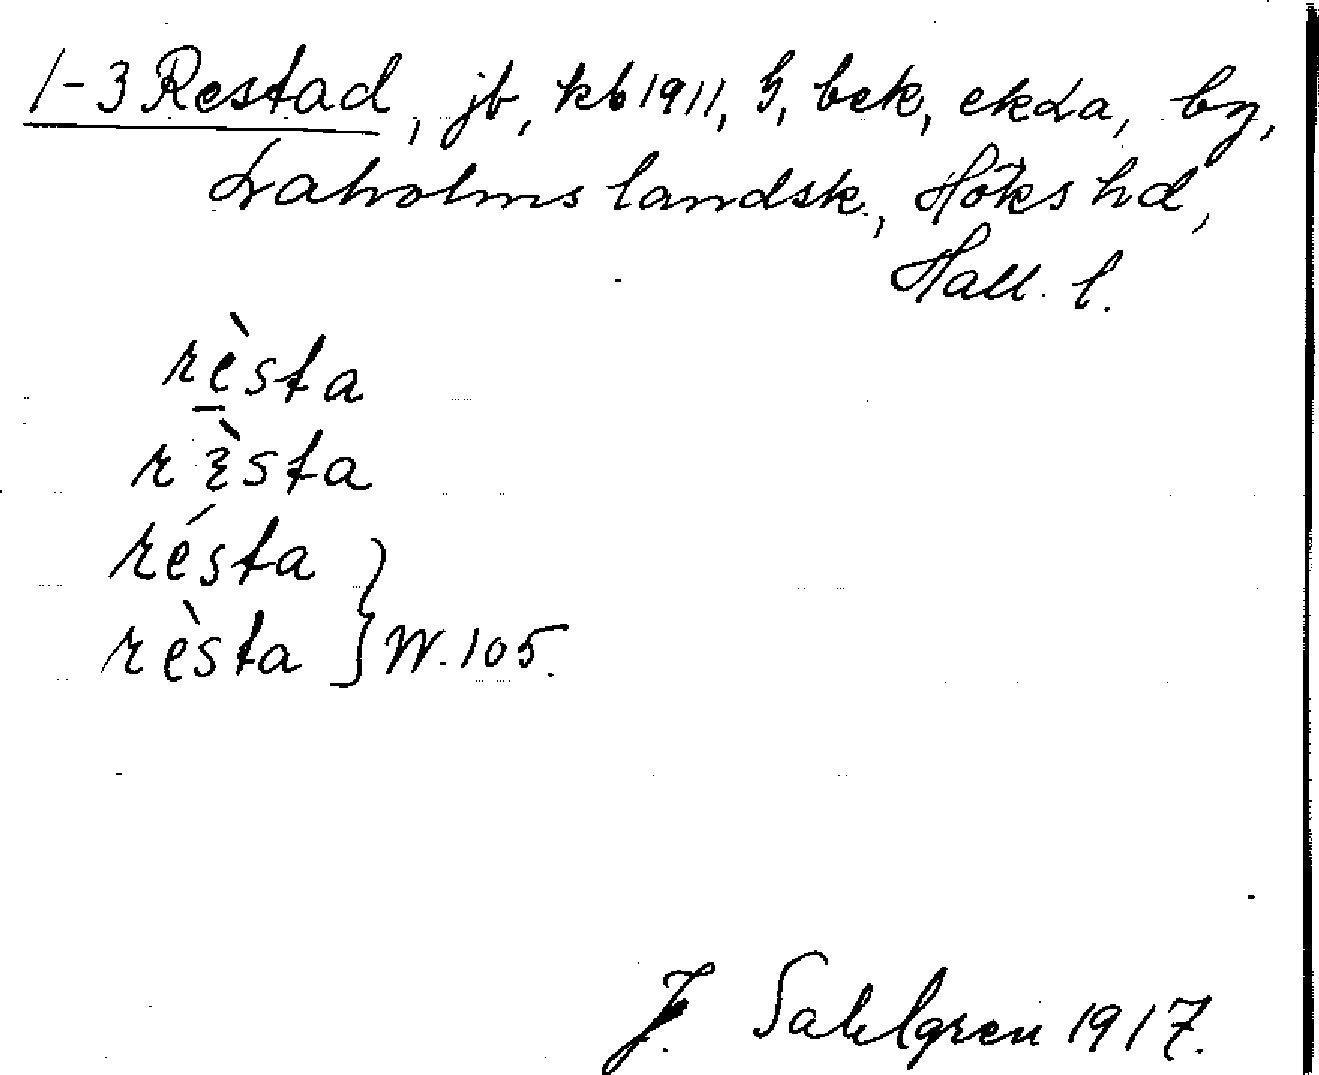 1-3 Restad, jb, kb 1911, G, bek, ekda, by,
Laholms landsk., Höks hd,
Hall. l.
rèsta
rɛ̀sta
résta
rèsta } W. 105.
J. Sahlgren 1917.